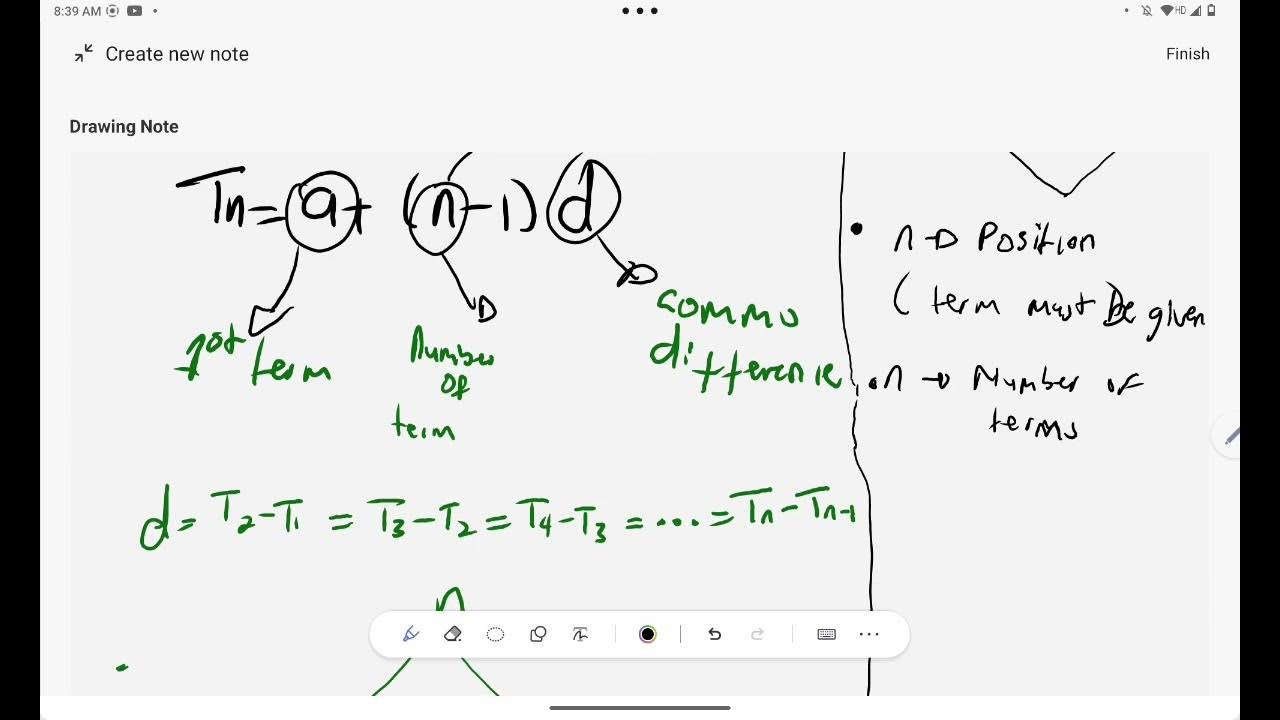 8:39 AM
HD
Create new note
Finish
Drawing Note
Tn = a + (n-1) d
term
Number
of
term
commo
difference
d = T2 - T1 = T3 - T2 = T4 - T3 = ... = Tn - Tn-1
n
n → Position
(term must be given
n → Number of
terms